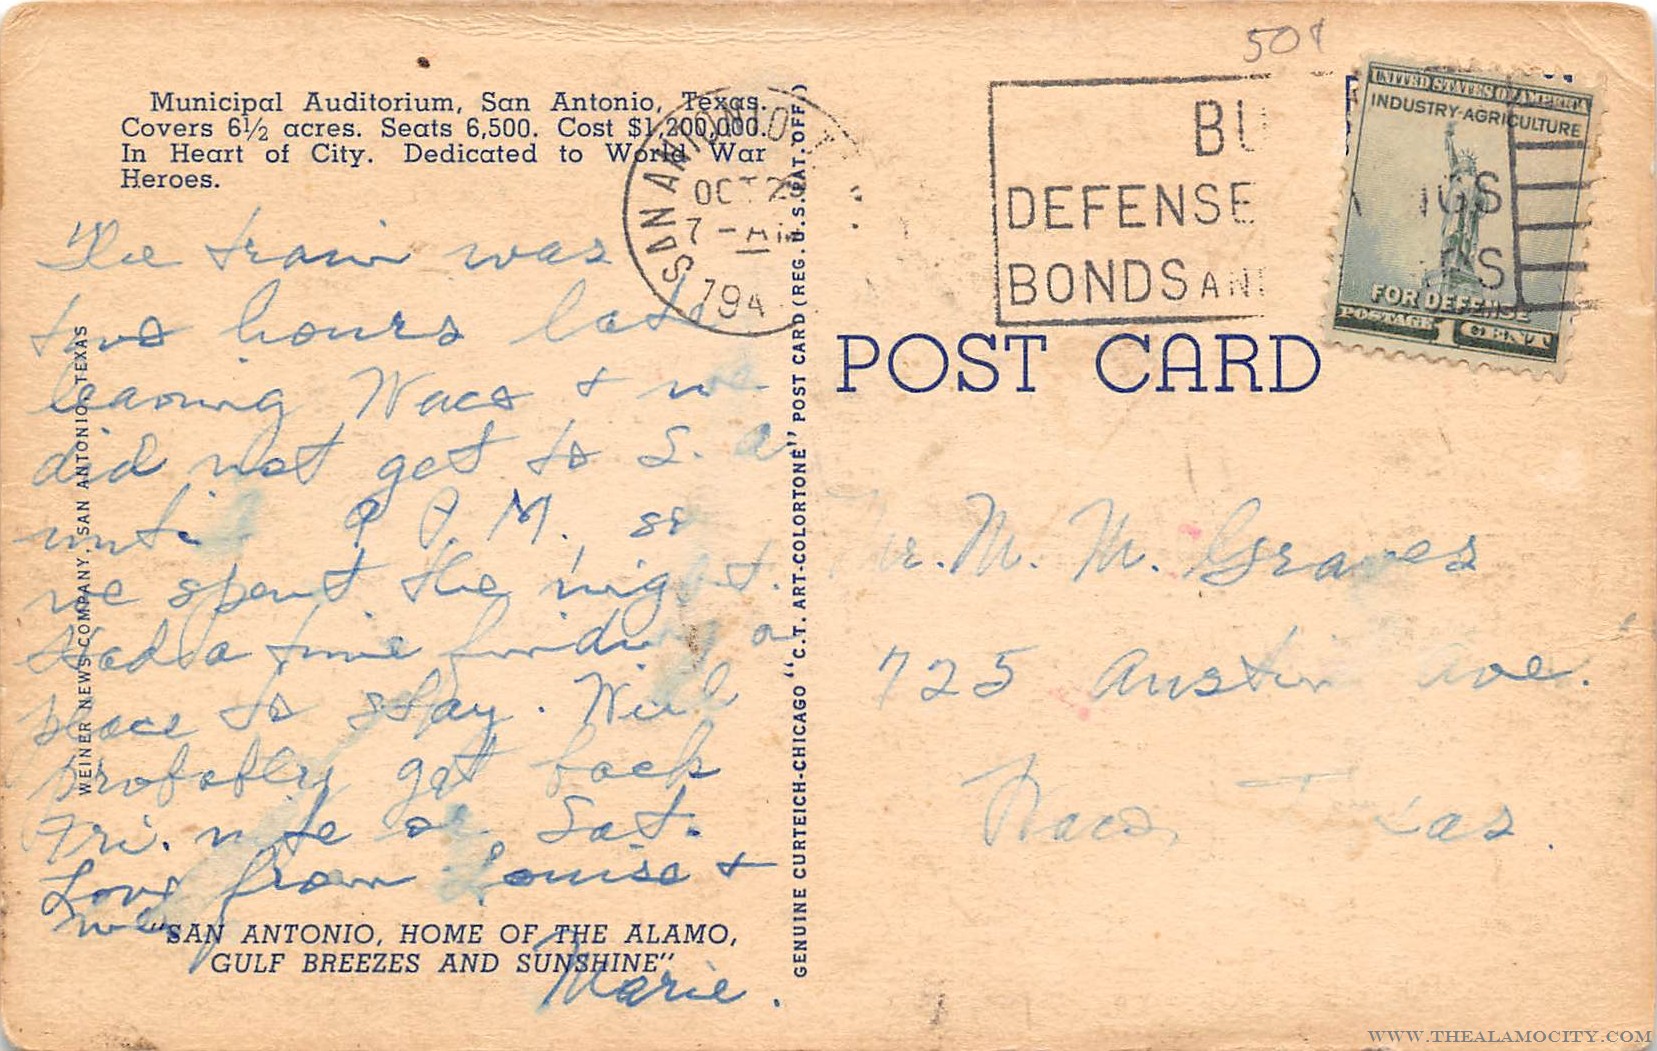 50¢
Municipal Auditorium, San Antonio, Texas.
Covers 6½ acres. Seats 6,500. Cost $1,200,000.
In Heart of City. Dedicated to World War
Heroes.
The train was
two hours late
leaving Waco & we
did not get to S. A
until P.M. so
we spent the night.
Had a time finding a
place to stay. Will
probably get back
Fri. nite or Sat.
Love from Louise &
me
Marie.
"SAN ANTONIO, HOME OF THE ALAMO,
GULF BREEZES AND SUNSHINE"
WEINER NEWS COMPANY, SAN ANTONIO, TEXAS
GENUINE CURTEICH-CHICAGO "C.T. ART-COLORTONE" POST CARD (REG. U.S. PAT. OFF.)
SAN ANTONIO
OCT 2
7-AM
194
BU
DEFENSE INGS
BONDS AN PS
UNITED STATES OF AMERICA
INDUSTRY-AGRICULTURE
FOR DEFENSE
POSTAGE 1 CENT
POST CARD
Mr. M. M. Graves
725 Austin Ave.
Waco, Texas.
WWW.THEALAMOCITY.COM